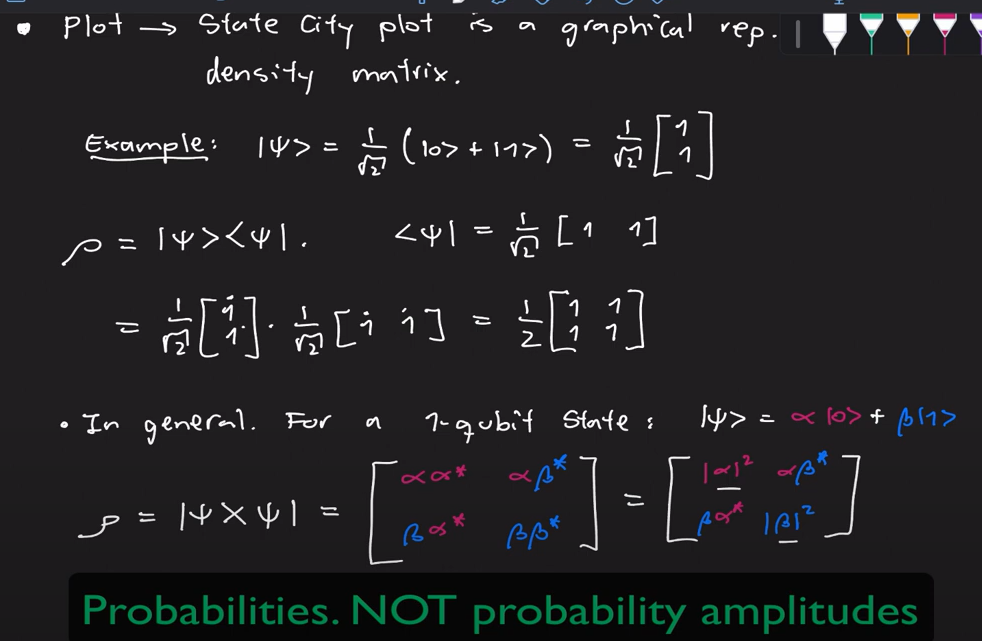 • Plot → State City plot is a graphical rep.
density matrix.
Example: |Ψ> = 1/√2 (|0> + |1>) = 1/√2 [1 1]
ρ = |Ψ><Ψ|. <Ψ| = 1/√2 [1 1]
= 1/√2 [1 1] · 1/√2 [1 1] = 1/2 [1 1 1 1]
• In general. For a 1-qubit State: |Ψ> = α|0> + β|1>
ρ = |ΨXΨ| = [αα* αβ* βα* ββ*] = [|α|² αβ* βα* |β|²]
Probabilities. NOT probability amplitudes